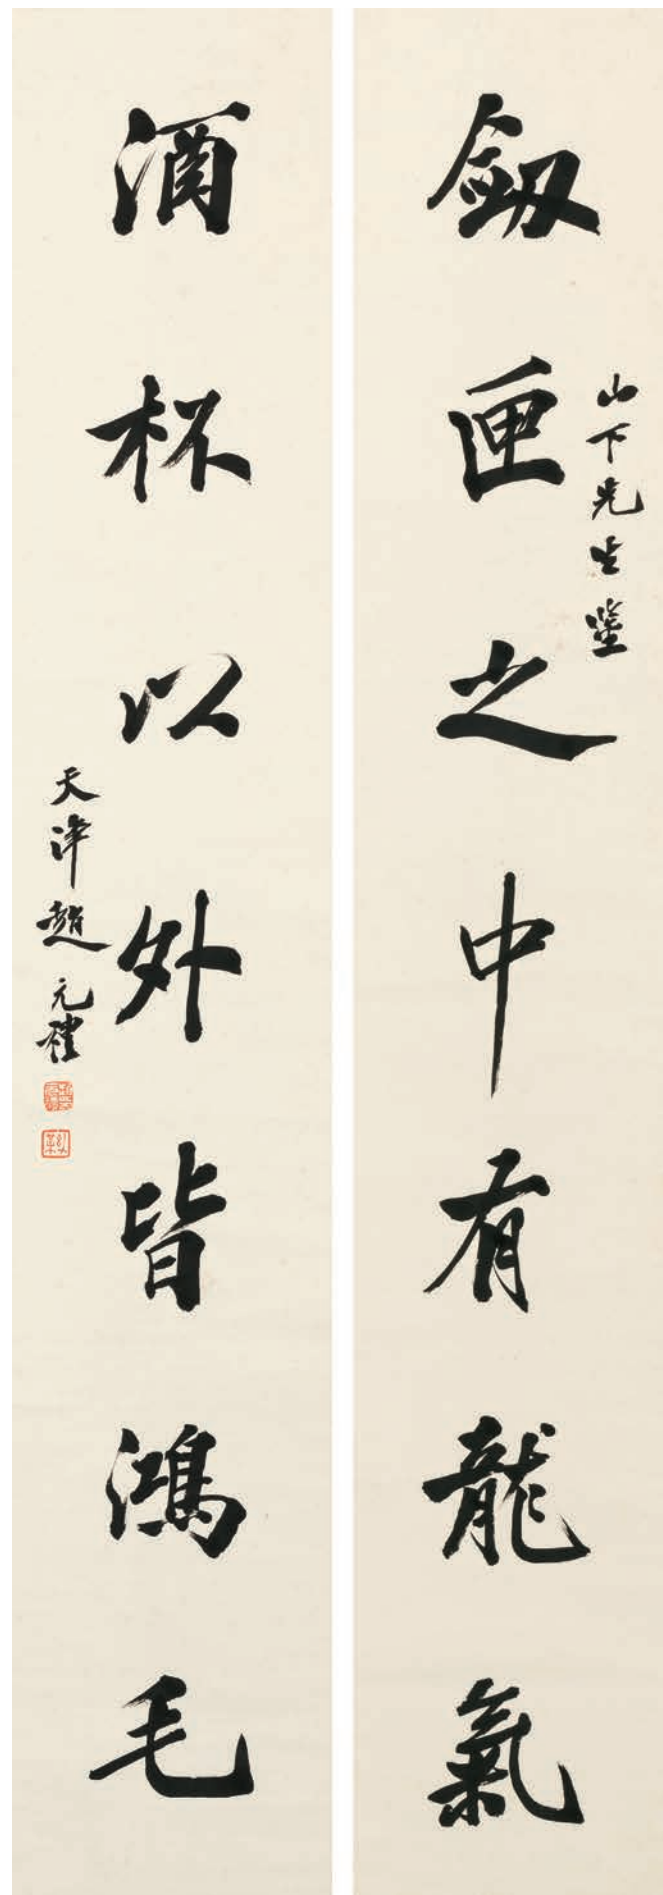 劒匣之中有龍氣
山下先生鑒
酒杯以外皆鴻毛
天津趙元禮